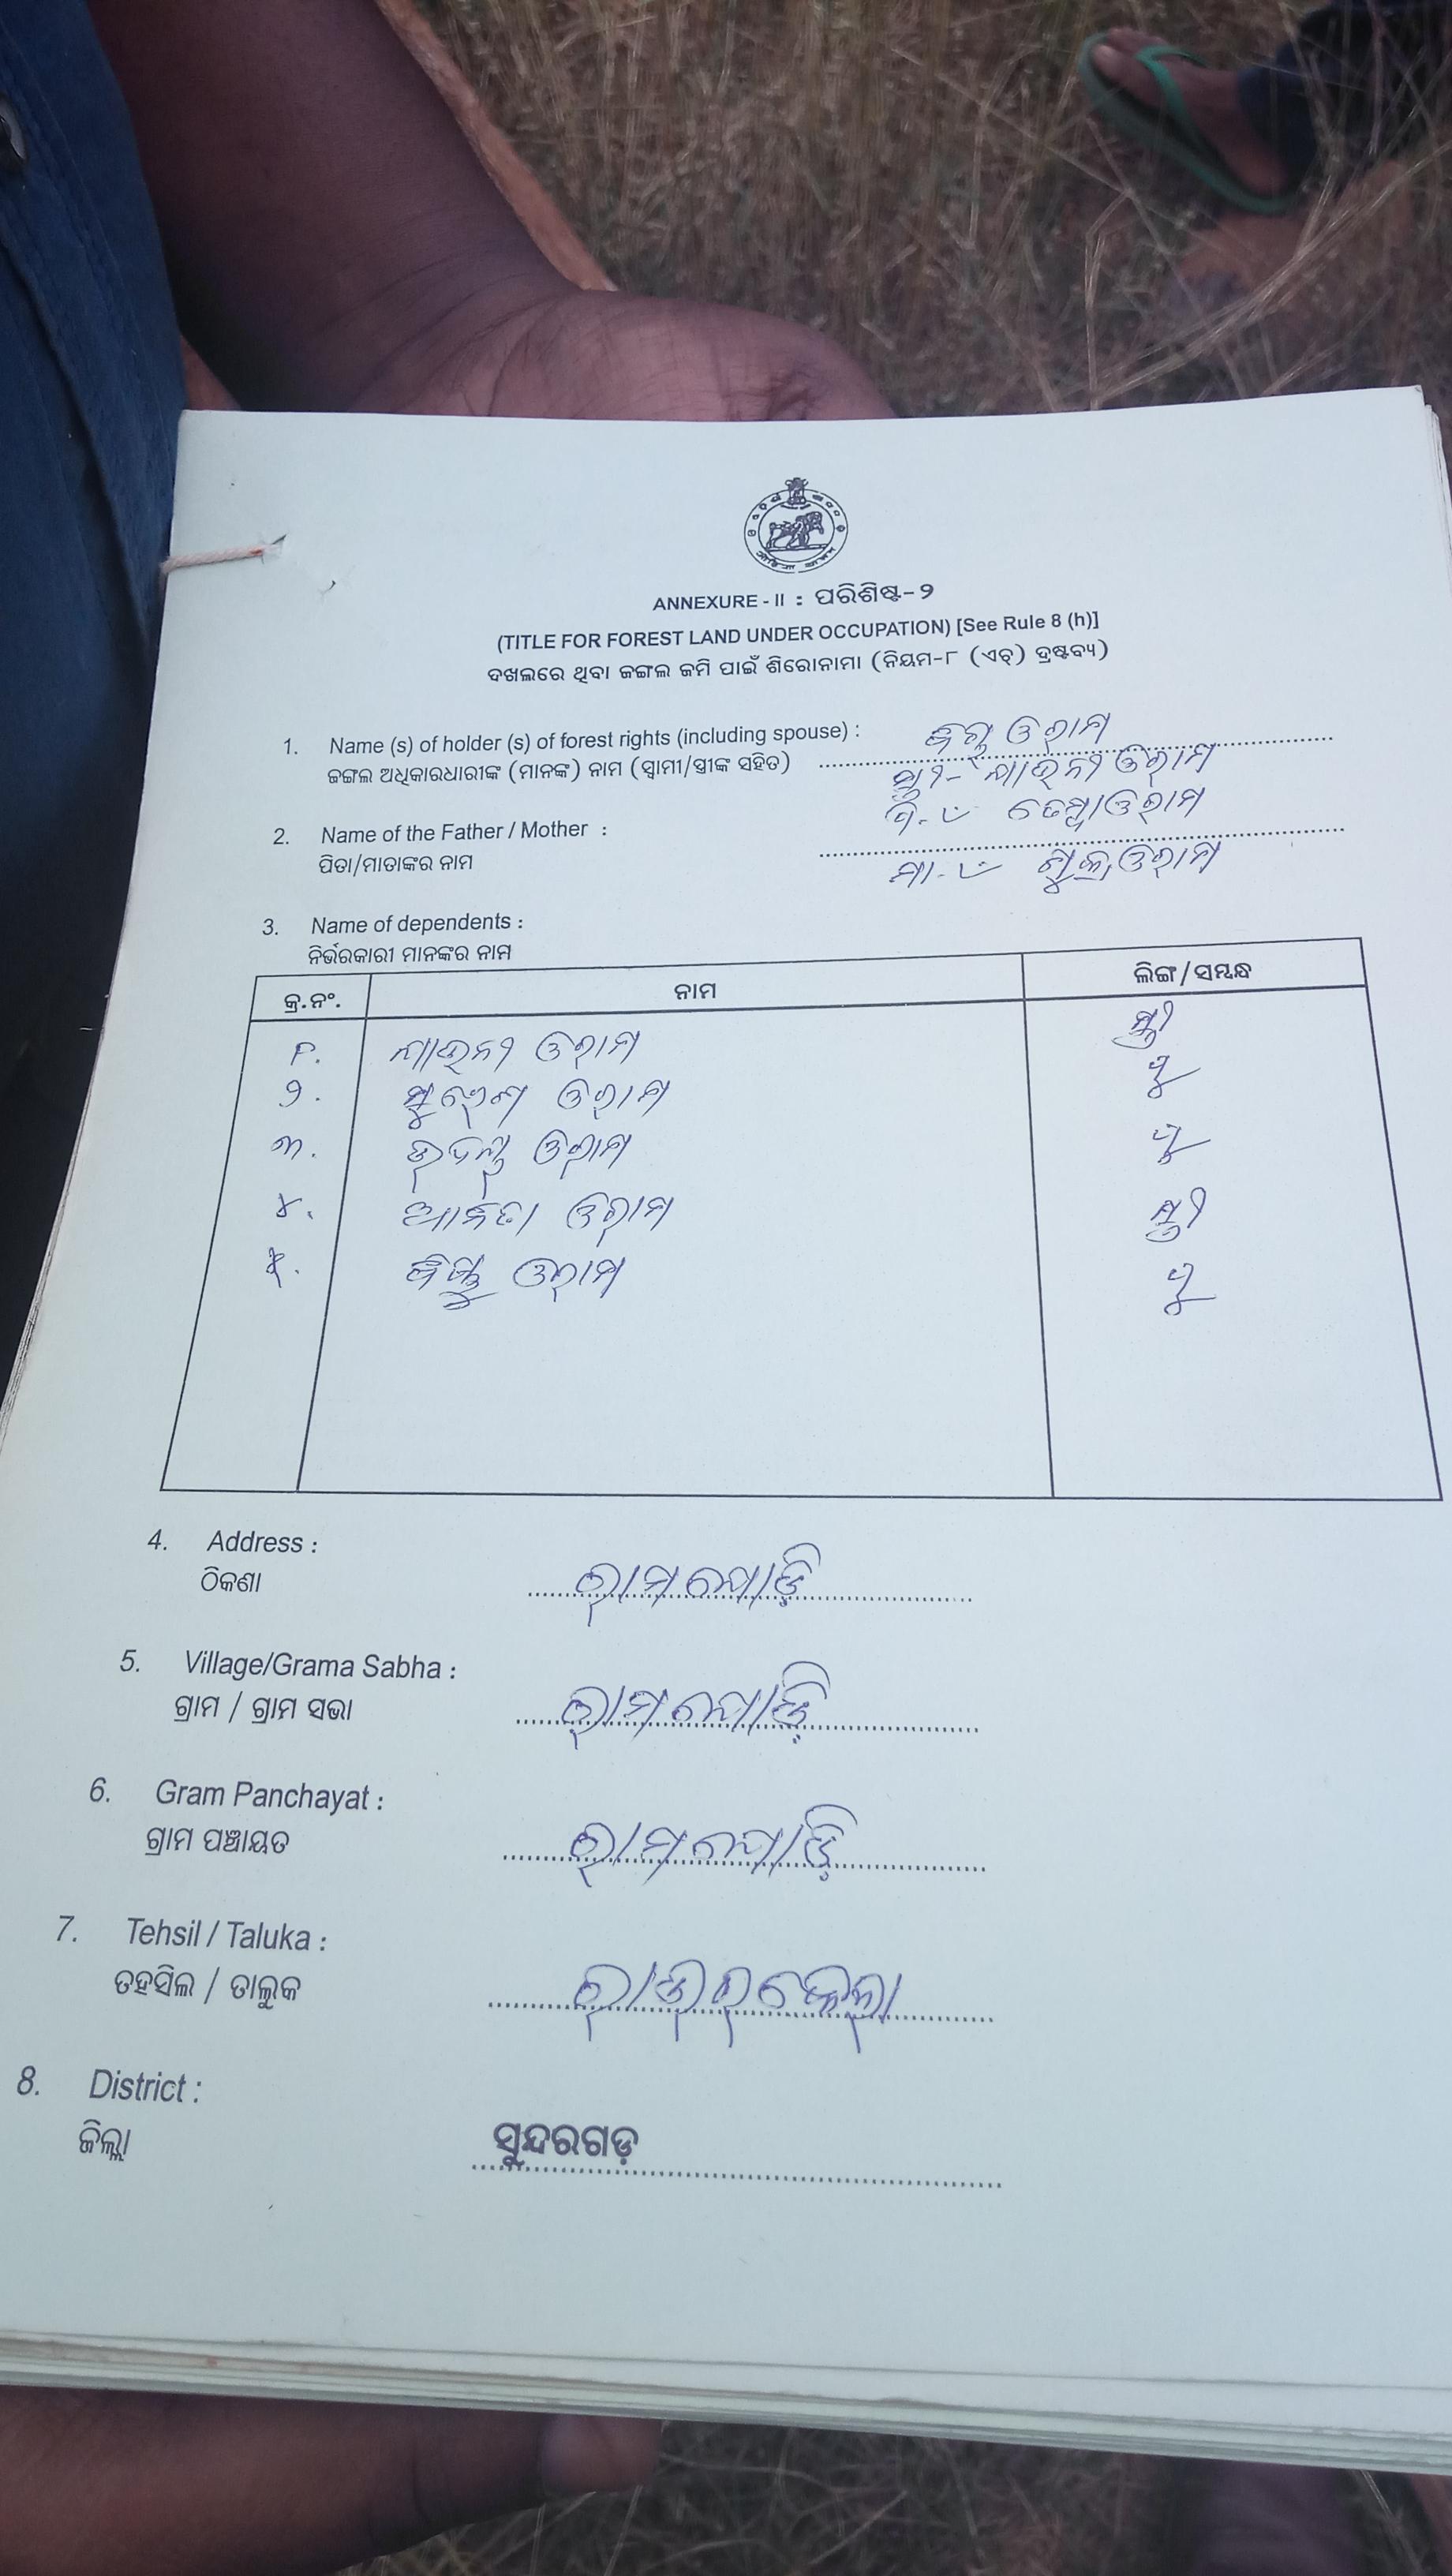 ANNEXURE - II : ପରିଶିଷ୍ଟ-୨
(TITLE FOR FOREST LAND UNDER OCCUPATION) [See Rule 8 (h)]
ଦଖଲରେ ଥିବା ଜଙ୍ଗଲ ଜମି ପାଇଁ ଶିରୋନାମା (ନିୟମ-୮ (ଏଚ୍) ଦ୍ରଷ୍ଟବ୍ୟ)
1. Name (s) of holder (s) of forest rights (including spouse) : ଓରାମ
ଜଙ୍ଗଲ ଅଧିକାରଧାରୀଙ୍କ (ମାନଙ୍କ) ନାମ (ସ୍ୱାମୀ/ସ୍ତ୍ରୀଙ୍କ ସହିତ) ସ୍ତ୍ରୀ- ଓରାମ
2. Name of the Father / Mother : ପି. ଓରାମ
ପିତା/ମାତାଙ୍କର ନାମ ମା. ଓରାମ
3. Name of dependents :
ନିର୍ଭରକାରୀ ମାନଙ୍କର ନାମ
କ୍ର.ନଂ. ନାମ ଲିଙ୍ଗ/ସମ୍ବନ୍ଧ
୧. ଓରାମ ସ୍ତ୍ରୀ
୨. ସୁରେଶ ଓରାମ ପୁ
୩. ଓରାମ ପୁ
୪. ଓରାମ ସ୍ତ୍ରୀ
୫. ଓରାମ ପୁ
4. Address :
ଠିକଣା ରାମଯୋଡ଼ି
5. Village/Grama Sabha :
ଗ୍ରାମ / ଗ୍ରାମ ସଭା ରାମଯୋଡ଼ି
6. Gram Panchayat :
ଗ୍ରାମ ପଞ୍ଚାୟତ ରାମଯୋଡ଼ି
7. Tehsil / Taluka :
ତହସିଲ / ତାଲୁକ ରାଉରକେଲା
8. District :
ଜିଲ୍ଲା ସୁନ୍ଦରଗଡ଼